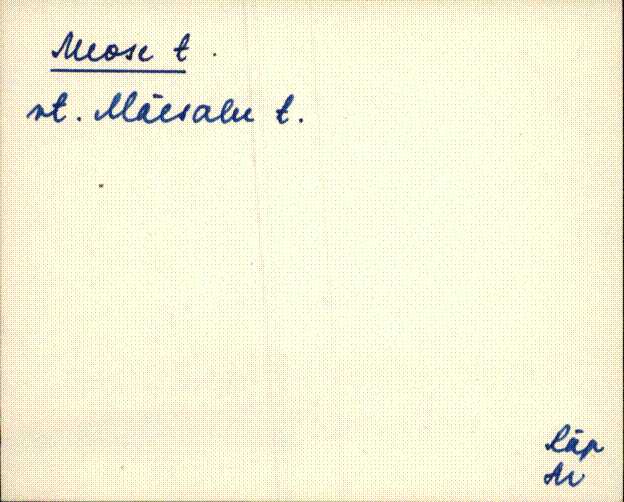 Meose t.
vt. Mäesalu t.
Räp